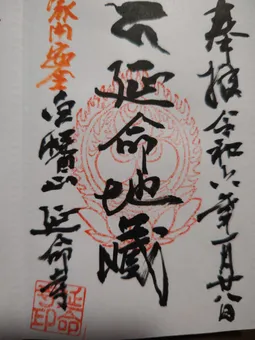 奉拝 令和六年一月廿八日
延命地蔵
家内安全
白鷺山 延命寺
延命寺印